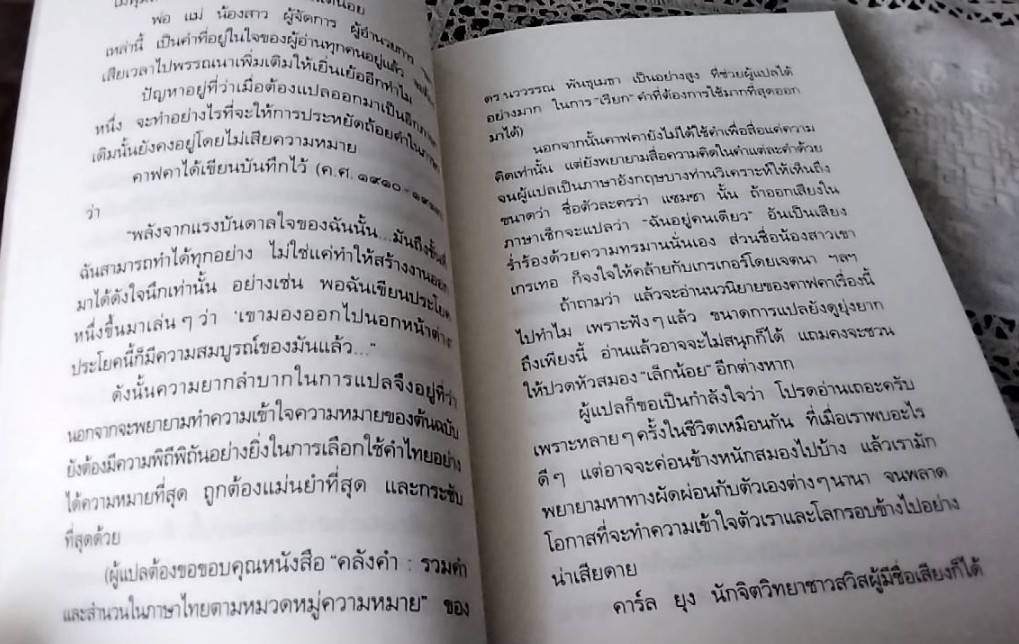 พ่อ แม่ น้องสาว ผู้จัดการ ผู้อำนวยการ
เหล่านี้ เป็นคำที่อยู่ในใจของผู้อ่านทุกคนอยู่แล้ว
เสียเวลาไปพรรณนาเพิ่มเติมให้เยิ่นเย้ออีกทำไม
ปัญหาอยู่ที่ว่าเมื่อต้องแปลออกมาเป็นอีกภาษา
หนึ่ง จะทำอย่างไรที่จะให้การประหยัดถ้อยคำในภาษา
เดิมนั้นยังคงอยู่โดยไม่เสียความหมาย
คาฟคาได้เขียนบันทึกไว้ (ค.ศ. ๑๙๑๐-
ว่า
"พลังจากแรงบันดาลใจของฉันนั้น...มันถึงขั้นที่
ฉันสามารถทำได้ทุกอย่าง ไม่ใช่แค่ทำให้สร้างงานออก
มาได้ดังใจนึกเท่านั้น อย่างเช่น พอฉันเขียนประโยค
หนึ่งขึ้นมาเล่นๆ ว่า 'เขามองออกไปนอกหน้าต่าง'
ประโยคนี้ก็มีความสมบูรณ์ของมันแล้ว..."
ดังนั้นความยากลำบากในการแปลจึงอยู่ที่ว่า
นอกจากจะพยายามทำความเข้าใจความหมายของต้นฉบับ
ยังต้องมีความพิถีพิถันอย่างยิ่งในการเลือกใช้คำไทยอย่าง
ได้ความหมายที่สุด ถูกต้องแม่นยำที่สุด และกระชับ
ที่สุดด้วย
(ผู้แปลต้องขอขอบคุณหนังสือ "คลังคำ : รวมคำ
และสำนวนในภาษาไทยตามหมวดหมู่ความหมาย" ของ
ดร.นววรรณ พันธุเมธา เป็นอย่างสูง ที่ช่วยผู้แปลได้
อย่างมาก ในการ "เรียก" คำที่ต้องการใช้มากที่สุดออก
มาได้)
นอกจากนั้นคาฟคายังไม่ได้ใช้คำเพื่อสื่อแค่ความ
คิดเท่านั้น แต่ยังพยายามสื่อความคิดในคำแต่ละคำด้วย
จนผู้แปลเป็นภาษาอังกฤษบางท่านวิเคราะห์ให้เห็นถึง
ขนาดว่า ชื่อตัวละครว่า แซมซา นั้น ถ้าออกเสียงใน
ภาษาเช็กจะแปลว่า "ฉันอยู่คนเดียว" อันเป็นเสียง
ร่ำร้องด้วยความทรมานนั่นเอง ส่วนชื่อน้องสาวเขา
เกรเทอ ก็จงใจให้คล้ายกับเกรเกอร์โดยเจตนา ฯลฯ
ถ้าถามว่า แล้วจะอ่านนวนิยายของคาฟคาเรื่องนี้
ไปทำไม เพราะฟังๆ แล้ว ขนาดการแปลยังดูยุ่งยาก
ถึงเพียงนี้ อ่านแล้วอาจจะไม่สนุกก็ได้ แถมคงจะชวน
ให้ปวดหัวสมอง "เล็กน้อย" อีกต่างหาก
ผู้แปลก็ขอเป็นกำลังใจว่า โปรดอ่านเถอะครับ
เพราะหลายๆ ครั้งในชีวิตเหมือนกัน ที่เมื่อเราพบอะไร
ดีๆ แต่อาจจะค่อนข้างหนักสมองไปบ้าง แล้วเรามัก
พยายามหาทางผัดผ่อนกับตัวเองต่างๆ นานา จนพลาด
โอกาสที่จะทำความเข้าใจตัวเราและโลกรอบข้างไปอย่าง
น่าเสียดาย
คาร์ล ยุง นักจิตวิทยาชาวสวิสผู้มีชื่อเสียงก็ได้